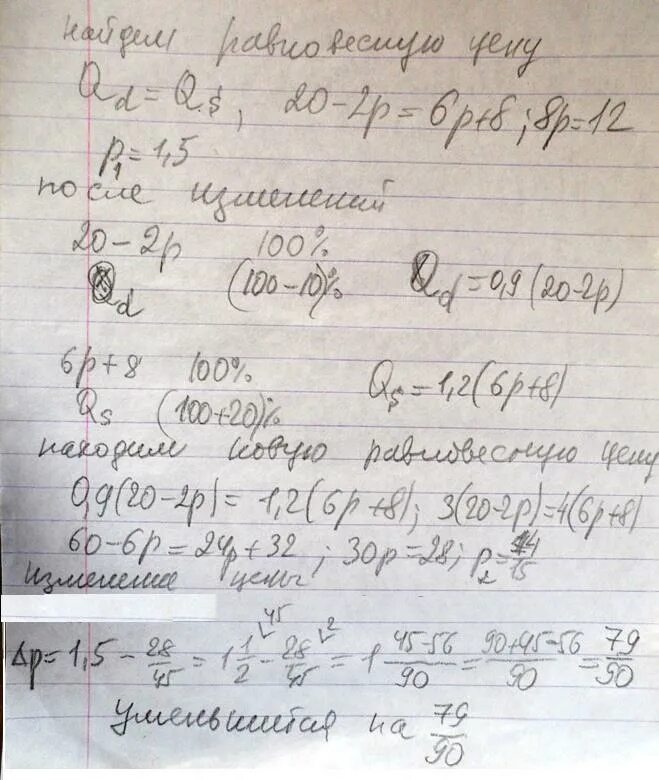 найдем равновесную цену
Qd = Qs, 20-2p = 6p+8; 8p=12
p₁ = 1,5
после изменений
20-2p 100%
Qd (100-10)% Qd = 0,9(20-2p)
6p+8 100% Qs = 1,2(6p+8)
Qs (100+20)%
находим новую равновесную цену
0,9(20-2p) = 1,2(6p+8); 3(20-2p)=4(6p+8)
60-6p = 24p+32; 30p=28; p₂=14/15
изменение цены
Δp = 1,5 - 28/45 = 1 1/2 - 28/45 = 1 45-56/90 = 90+45-56/90 = 79/90
уменьшится на 79/90